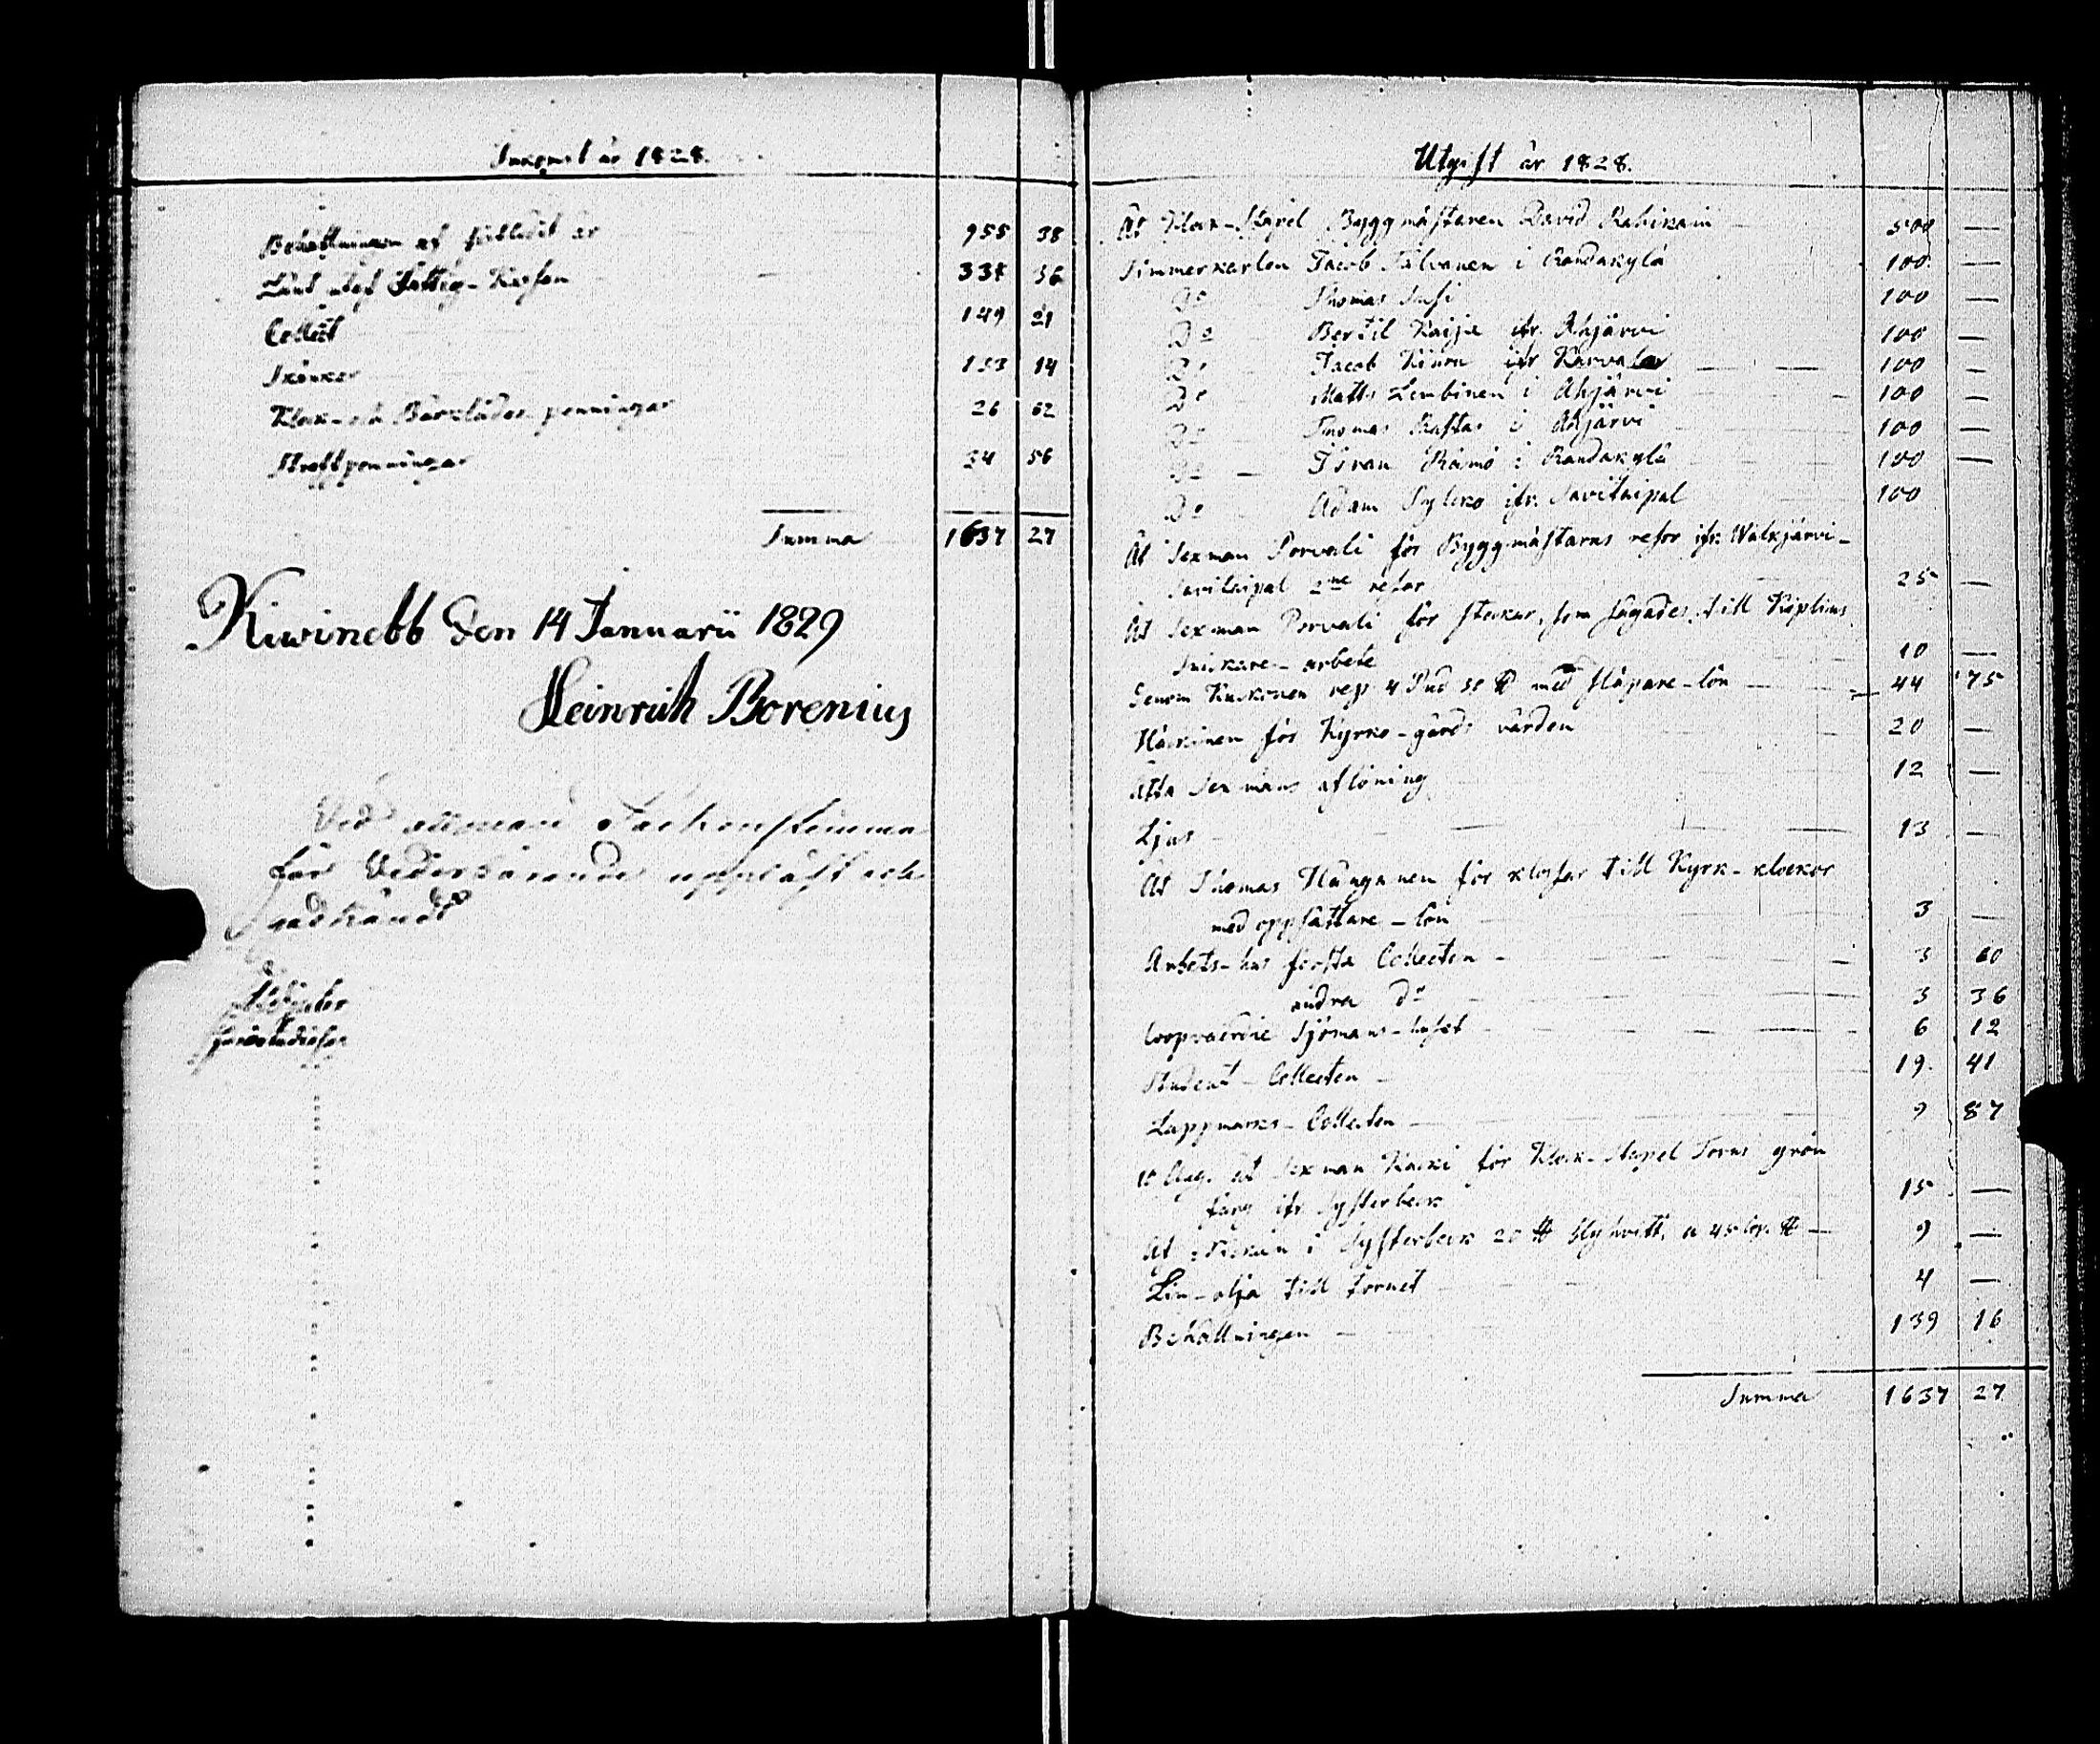 Inkomst år 1828.
Behållningen af förledit år 955 38
Lånt utaf Fattig-Kassan 337 36
Collect 149 21
Skänker 133 14
Klock- och Bårkläde penningar 26 62
Straffpenningar 34 56
Summa 1637 27
Kiwinebb den 14 Januarii 1829
Heinrich Borenius
Vid allmän Sockenstämma
för Vederbörande uppläst och
godkändt
Utgift år 1828.
Åt Klock-Stapel Byggmästaren David Rahikain 500 —
Timmerkarlen Jacob Tilvanen i Randakylä 100 —
Do Thomas Susi 100 —
Do Bertil Kaija ifr. Ahjärvi 100 —
Do Jacob Kiuru ifr Karvala 100 —
Do Matts Lembinen i Ahjärvi 100 —
Do Thomas Rastas i Ahjärvi 100 —
Do Göran Rämö i Randakylä 100 —
Do Adam ifr. Savitaipal 100
Åt Sexman Porvali för Byggmästarns resor ifr. Walkjärvi-
Savitaipal 2ne resor 25 —
Åt Sexman Porvali för stockar, som sågades till
Snickare-arbete 10 —
Genom rep 4 Pud 35 ℔ med Släpare-lön 44 75
Häkkinen för Kyrko-gårds vården 20 —
Åtta Sexmans aflöning 12 —
Ljus 13 —
Åt Thomas för klossar till Kyrk-klockor
med oppsättare-lön 3 —
Arbets-hus första Collecten 3 60
andra do 3 36
Coopvaerdie Sjömans-huset 6 12
Student-Collecten 19 41
Lappmarks-Collecten 9 87
10 Aug. åt Sexman Kaiki för Klock-Stapel Torns grön
färg ifr. Systerbeck 15 —
Åt i Systerbeck 20 ℔ blyhvitt, a 45 kop. ℔ 9 —
Lin-olja till tornet 4 —
Behållningen 139 16
Summa 1637 27